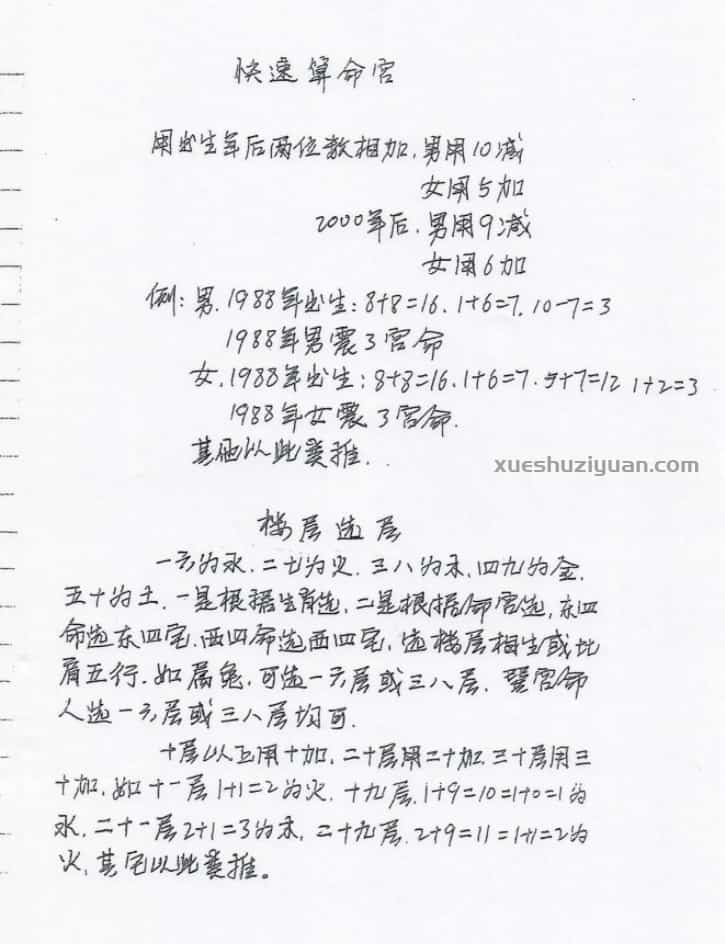 快速算命宫
用出生年后两位数相加.男用10减
女用5加
2000年后.男用9减
女用6加
例:男.1988年出生:8+8=16.1+6=7.10-7=3
1988年男震3宫命
女.1988年出生:8+8=16.1+6=7.5+7=12 1+2=3
1988年女震3宫命.
其他以此类推.
xueshuziyuan.com
楼层选层
一六为水.二七为火.三八为木.四九为金.
五十为土.一是根据生肖选,二是根据命宫选,东四
命选东四宅.西四命选西四宅,选楼层相生或比
肩五行.如属兔,可选一六层或三八层.震宫命
人选一六层或三八层均可.
十层以上用十加,二十层用二十加.三十层用三
十加.如十一层1+1=2为火.十九层.1+9=10=1+0=1为
水,二十一层2+1=3为木,二十九层.2+9=11=1+1=2为
火,其它以此类推。